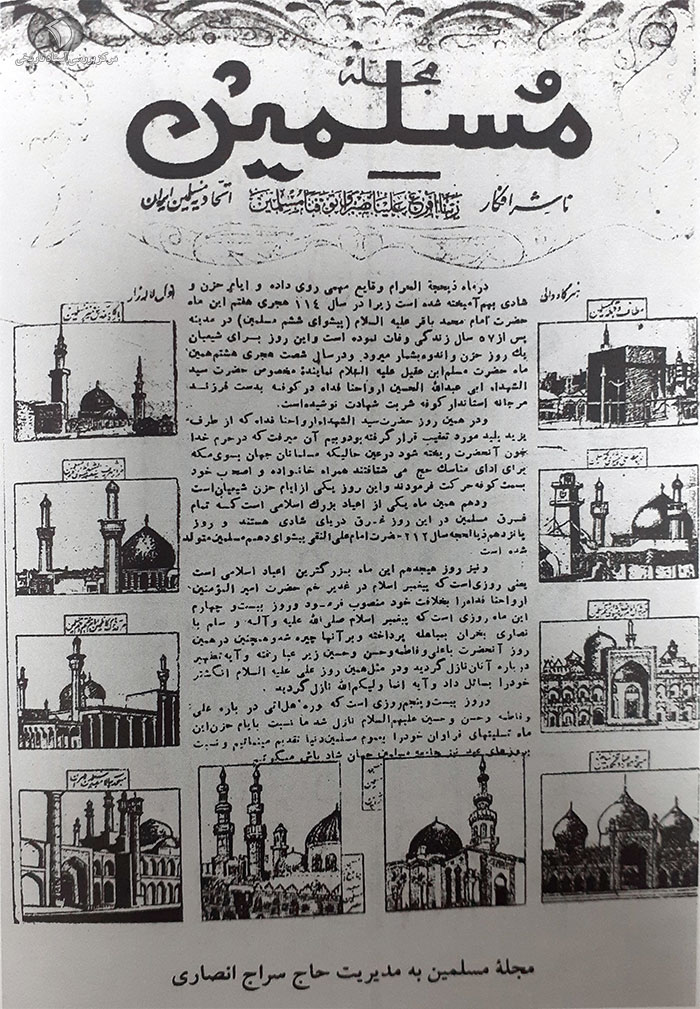 مرکز بررسی اسناد تاریخی
مجلهٔ
مسلمین
ناشر افکار
ربنا افرغ علینا صبرا و توفنا مسلمین
اتحادیه مسلمین ایران
در ماه ذیحجة الحرام وقایع مهمی روی داده و ایام حزن و
شادی بهم آمیخته شده است زیرا در سال ۱۱۴ هجری هفتم این ماه
حضرت امام محمد باقر علیه السلام (پیشوای ششم مسلمین) در مدینه
پس از ۵۷ سال زندگی وفات نموده است و این روز برای شیعیان
یك روز حزن و اندوه بشمار میرود. و در سال شصت هجری هشتم همین
ماه حضرت مسلم ابن عقیل علیه السلام نمایندهٔ مخصوص حضرت سید
الشهداء ابی عبدالله الحسین ارواحنا فداه در کوفه بدست فرزند
مرجانه استاندار کوفه شربت شهادت نوشیده است.
و در همین روز حضرت سید الشهداء ارواحنا فداه که از طرف
یزید پلید مورد تعقیب قرار گرفته بود و بیم آن میرفت که در حرم خدا
خون آنحضرت ریخته شود در عین حالیکه مسلمانان جهان بسوی مکه
برای ادای مناسك حج می شتافتند همراه خانواده و اصحاب خود
بسمت کوفه حرکت فرمودند و این روز یکی از ایام حزن شیعیان است
و دهم همین ماه یکی از اعیاد بزرك اسلامی است که تمام
فرق مسلمین در این روز غرق دریای شادی هستند و روز
پانزدهم ذیالحجه سال ۲۱۲ حضرت امام علی النقی پیشوای دهم مسلمین متولد
شده است
و نیز روز هیجدهم این ماه بزرگترین اعیاد اسلامی است
یعنی روزی است که پیغمبر اسلام در غدیر خم حضرت امیر المؤمنین
ارواحنا فداه را بخلافت خود منصوب فرمود و روز بیست و چهارم
این ماه روزی است که پیغمبر اسلام صلی الله علیه و آله و سلم با
نصاری نجران بمباهله پرداخته و بر آنها چیره شد و همچنین در همین
روز آنحضرت با علی و فاطمه و حسن و حسین زیر عبا رفته و آیه تطهیر
در باره آنان نازل گردید و در مثل همین روز علی علیه السلام انگشتر
خود را بسائل داد و آیه انما ولیکم الله نازل گردید.
و روز بیست و پنجم روزی است که سوره هل اتی در باره علی
و فاطمه و حسن و حسین علیهم السلام نازل شد ما نسبت بایام حزن این
ماه تسلیتهای فراوان خود را بعموم مسلمین دنیا تقدیم مینمائیم و نسبت
بروزهای عید نیز بجامعه مسلمین جهان شاد باش میگوئیم.
مجلهٔ مسلمین به مدیریت حاج سراج انصاری